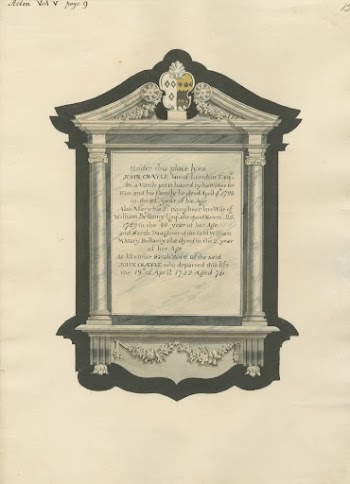 Acton Vol V page 9
Under this place lyes
JOHN CRAYLE late of London Esq
In a Vault purchased by his Widow for
Him and his Family he dyed April
in the year of his Age
Also Mary his Daughter late Wife of
William Bellamy Esq she dyed 26
1729 in the 40 year of her Age
and Sarah Daughter of the said William
& Mary Bellamy she dyed in the 2 year
of her Age
As likewise Sarah Wife of the said
JOHN CRAYLE who departed this life
the 19 of April 1732 Aged 76